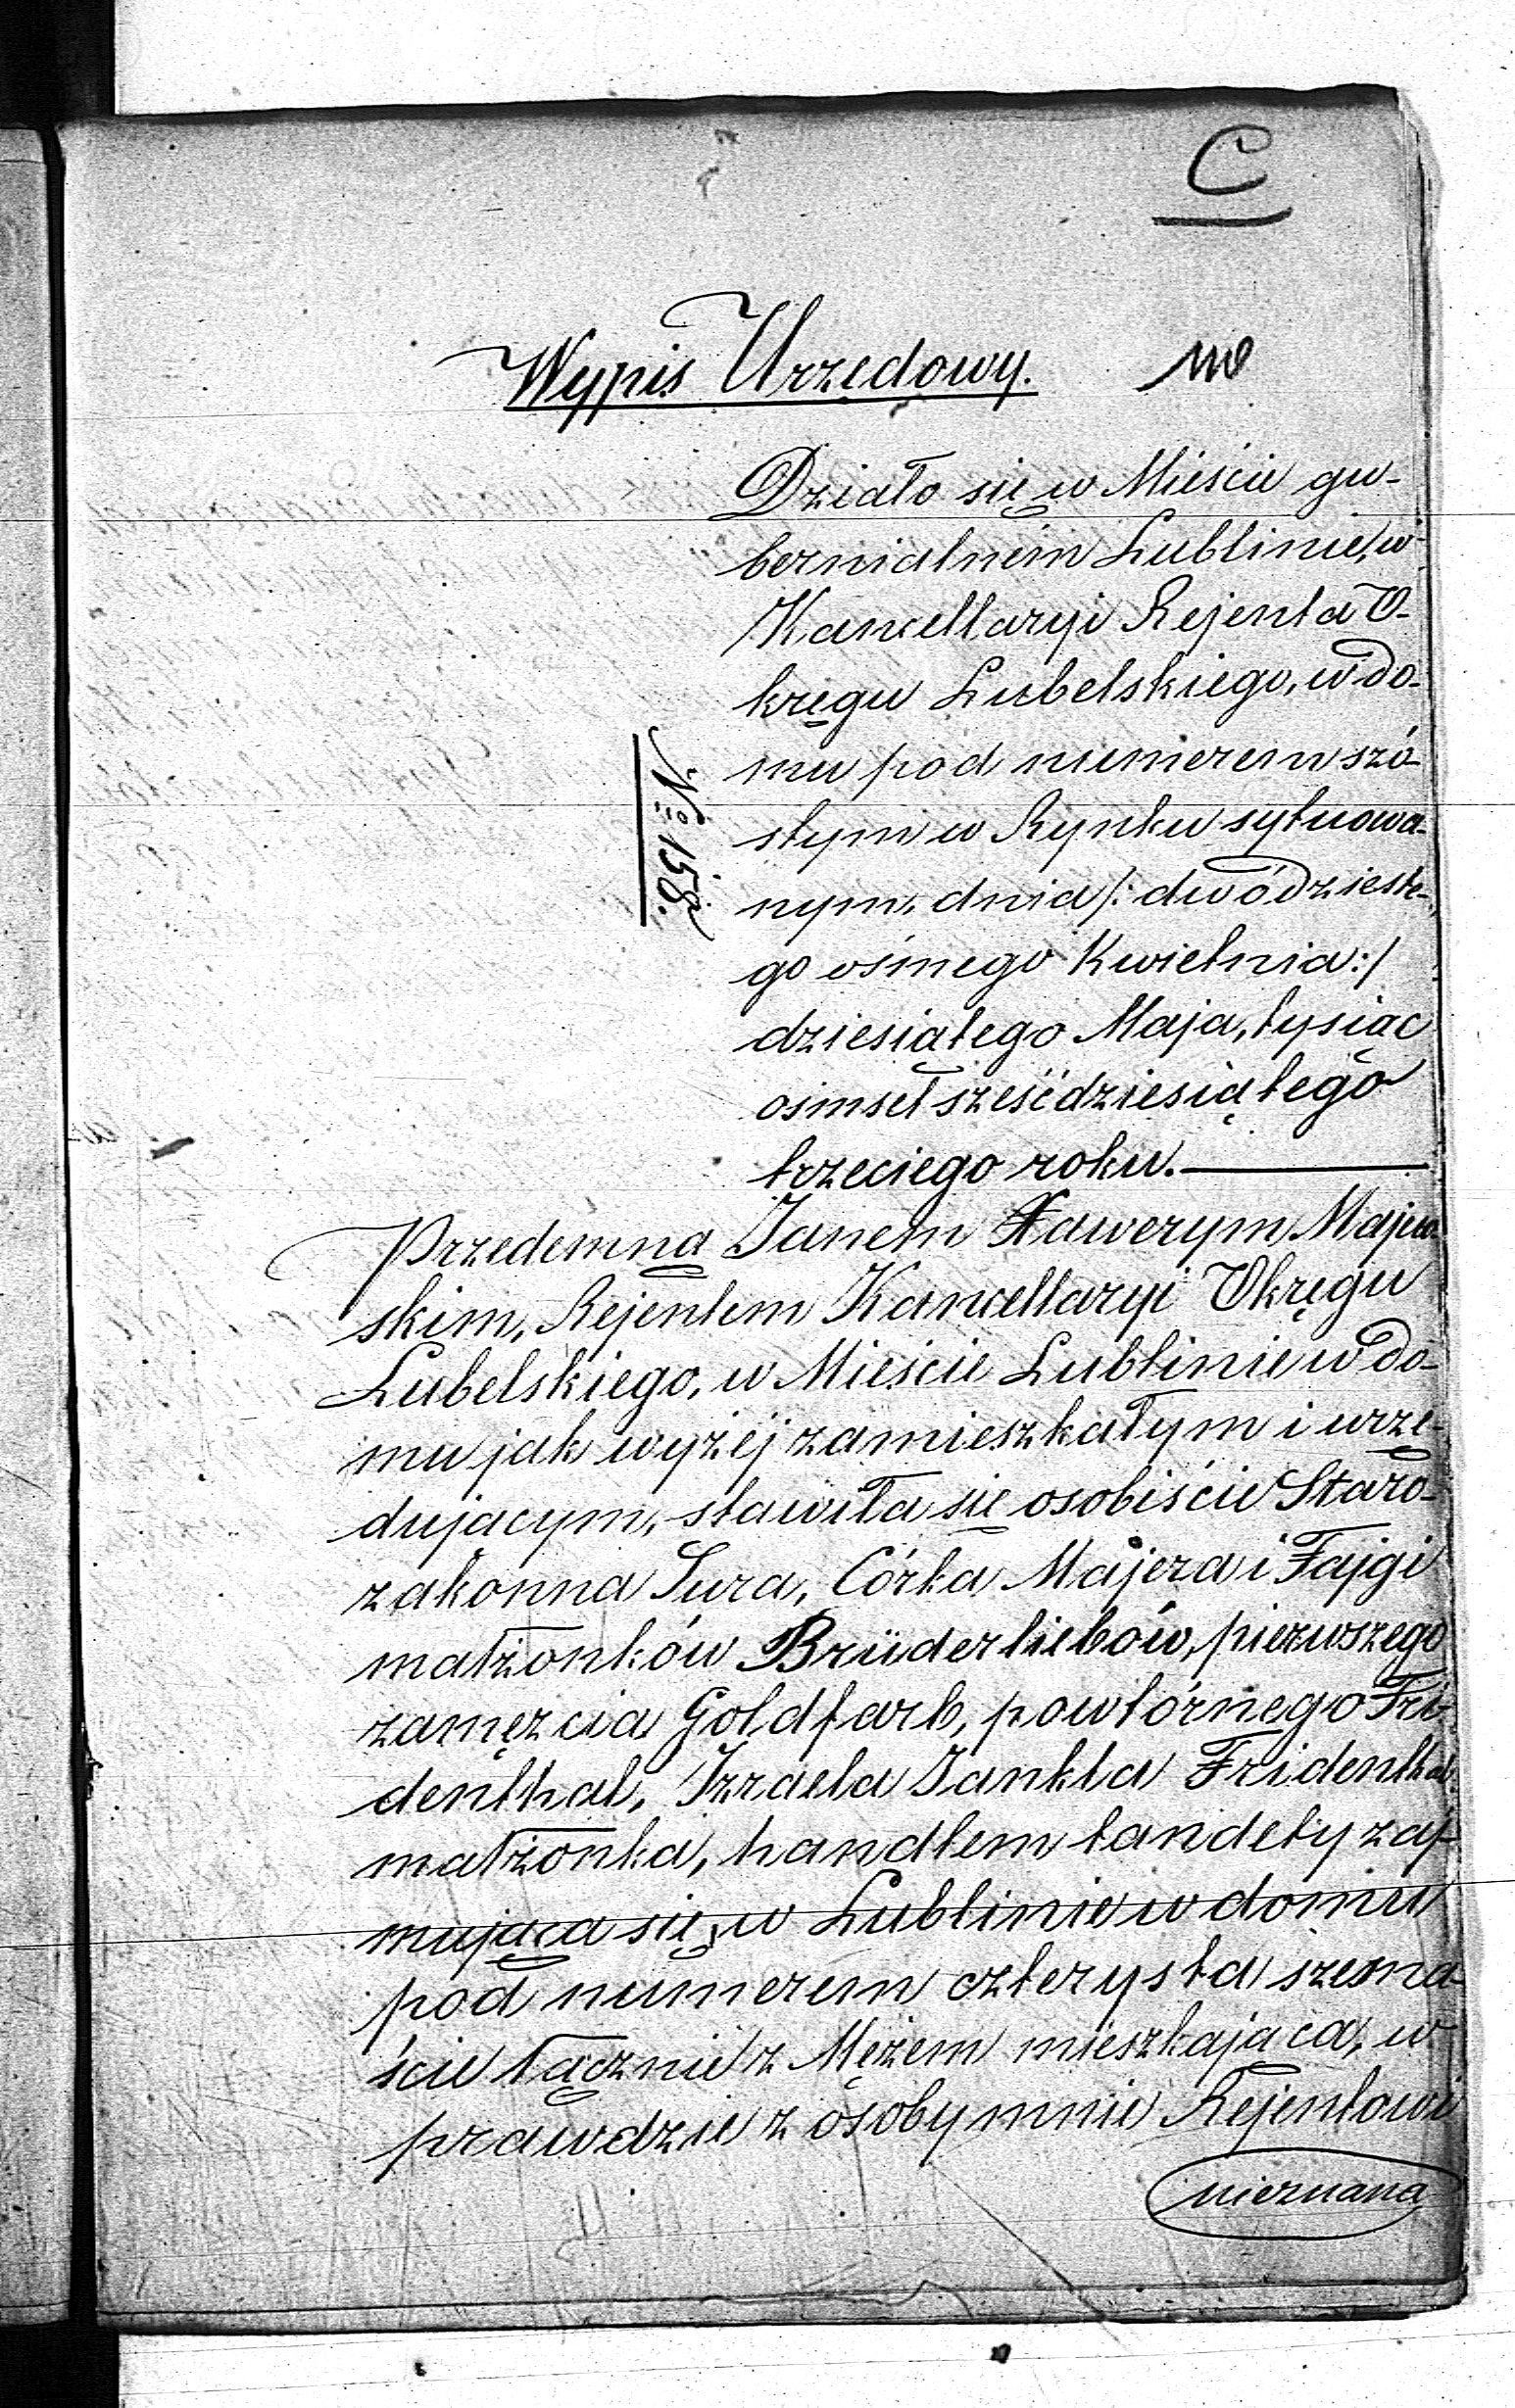 C
Wypis Urzędowy.
Działo się w Mieście gu-
bernialném Lublinie, w
Kancellaryi Rejenta O-
kręgu Lubelskiego, w do-
mu pod numerem szó-
stym w Rynku sytuowa-
nym, dnia /: dwódzieste-
go ósmego Kwietnia :/
dziesiątego Maja, tysiąc
ośmset sześćdziesiątego
trzeciego roku.
№ 158.
Przedemną Janem Xawerym Majew-
skim, Rejentem Kancellaryi Okręgu
Lubelskiego, w Mieście Lublinie w do-
mu jak wyżéj zamieszkałym i urzę-
dującym, stawiła się osobiście Staro-
zakonna Sura, Córka Majera i Fajgi
małżonków Brüderliebów, pierwszego
zamęzcia Goldfarb, powtórnego Fri-
denthal, Izraela Jankla Fridenthal
małżonka, handlem tandety zaj-
mująca się, w Lublinie w domu
pod numerem czterysta szesna-
ście łącznie z Mężem mieszkająca, w
prawdzie z osoby mnie Rejentowi
nieznana